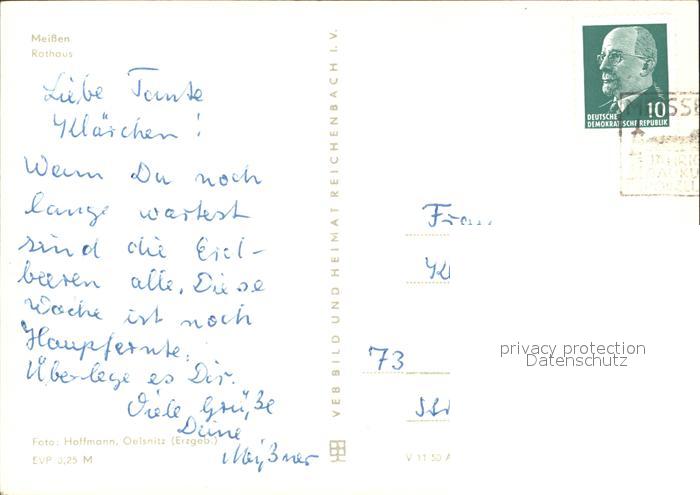 Meißen
Rathaus
Liebe Tante
Klärchen!
Wenn Du noch
lange wartest
sind die Erd-
beeren alle. Diese
Woche ist noch
Haupfernte.
Überlege es Dir.
Viele Grüße
Deine
Meißner
Foto: Hoffmann, Oelsnitz (Erzgeb.)
EVP 0,25 M
VEB BILD UND HEIMAT REICHENBACH I. V.
10
DEUTSCHE
DEMOKRATISCHE REPUBLIK
73
privacy protection
Datenschutz
V 11 50 A